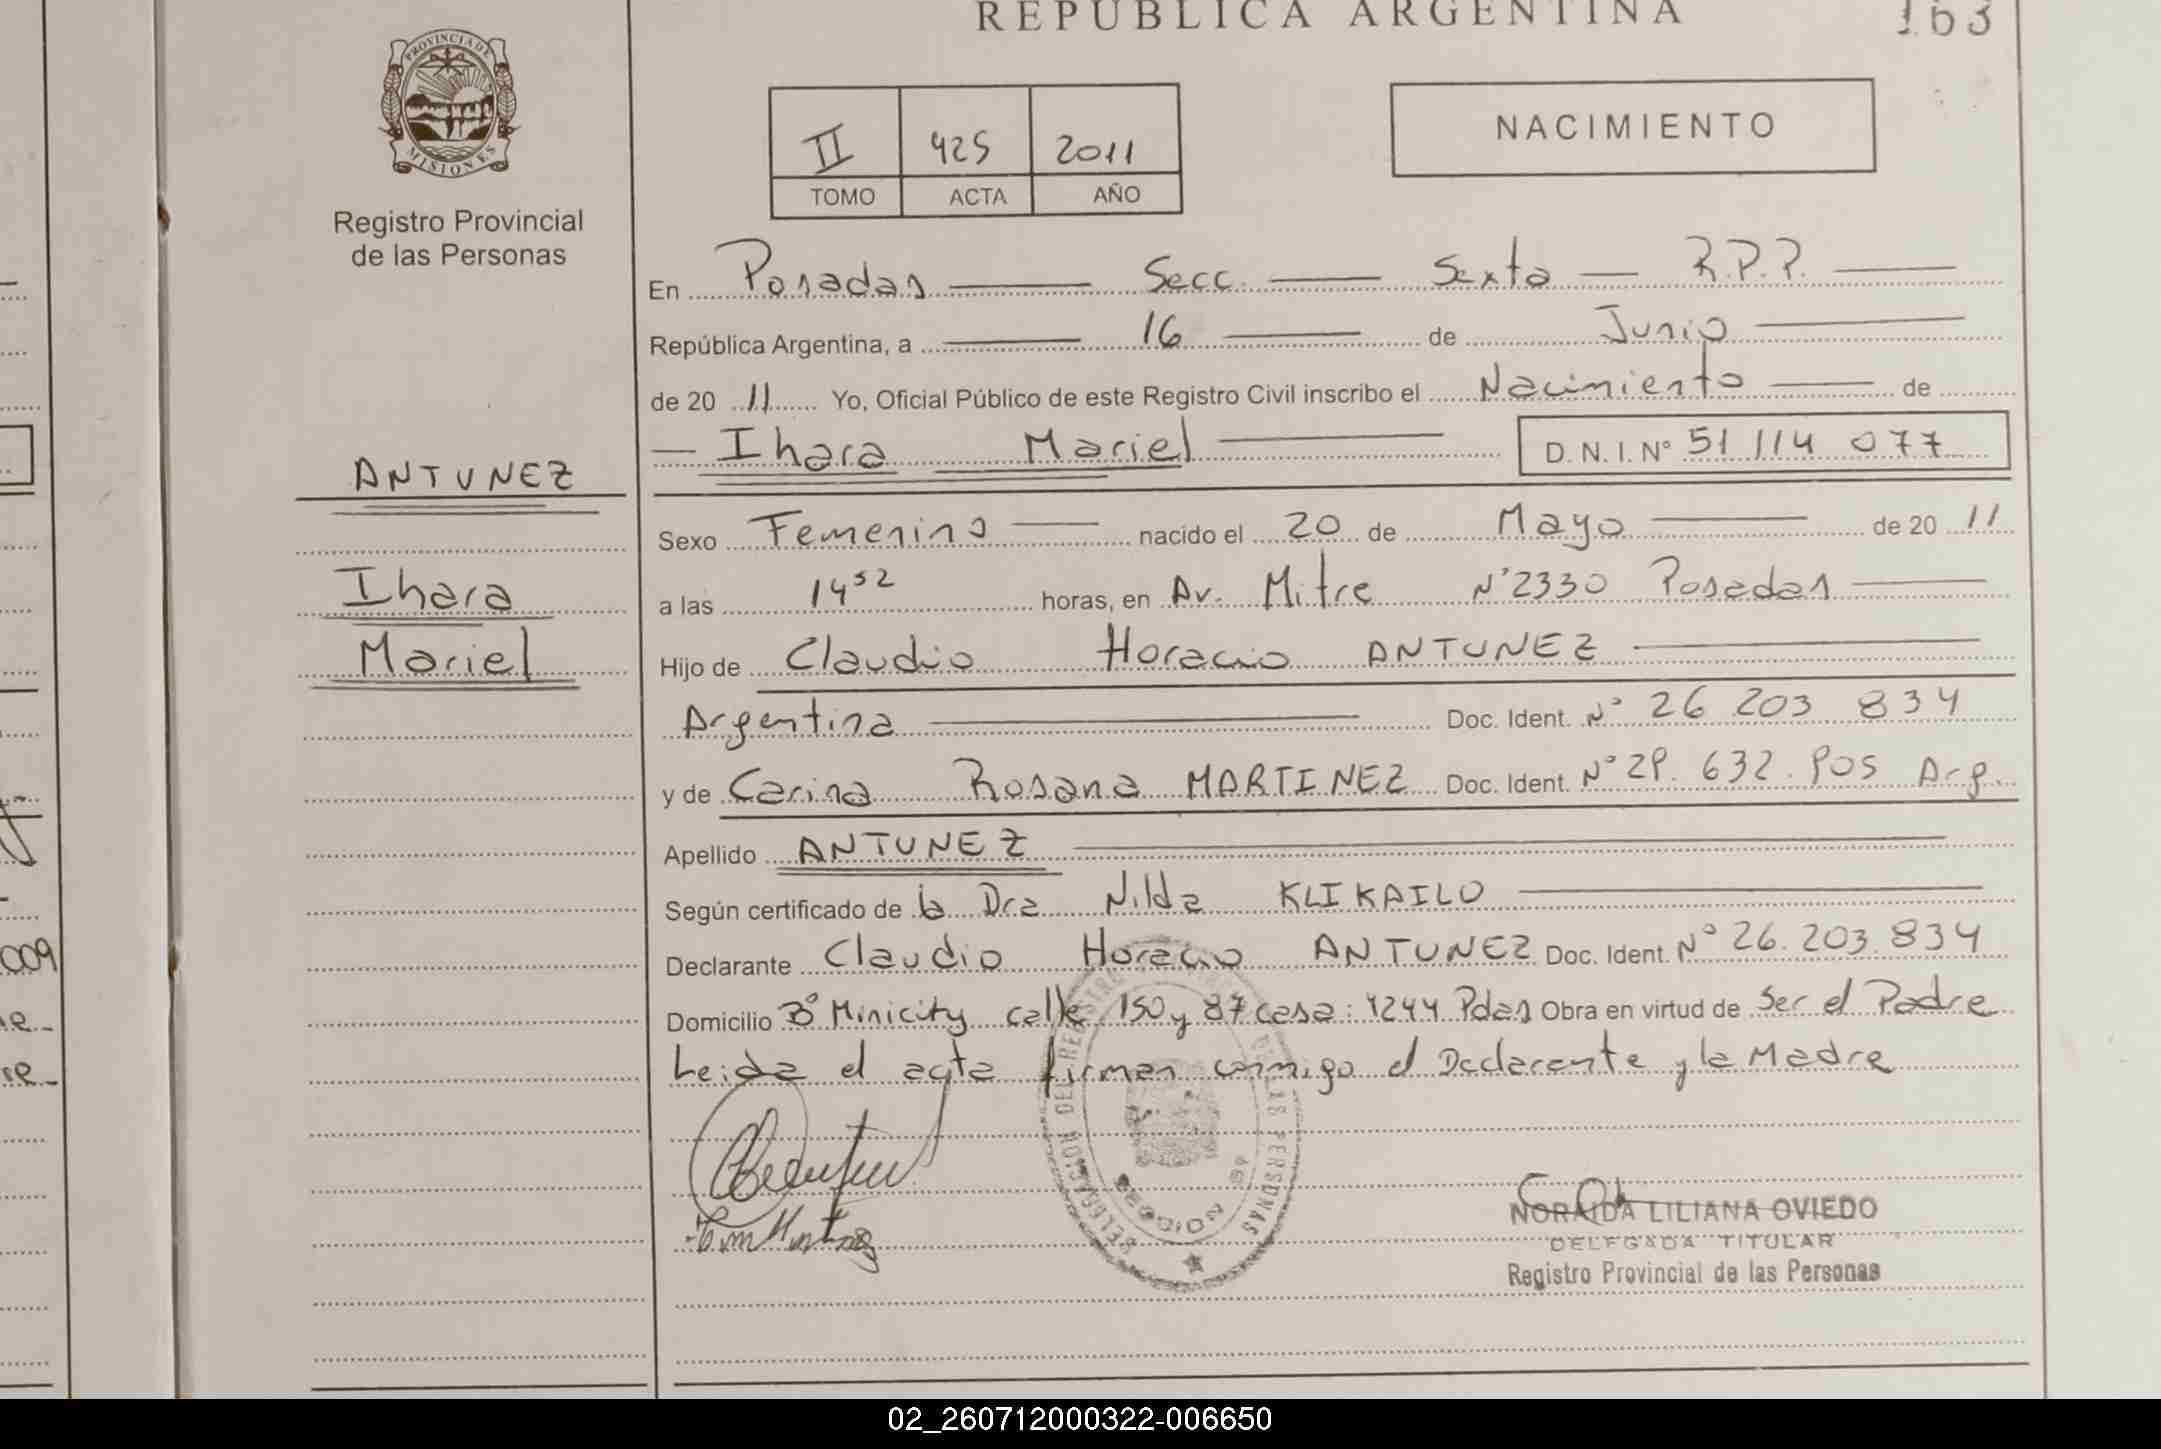 REPÚBLICA ARGENTINA
163
PROVINCIA DE
MISIONES
Registro Provincial
de las Personas
II 425 2011
TOMO ACTA AÑO
NACIMIENTO
En Posadas Secc Sexta R.P.P.
República Argentina, a 16 de Junio
de 20 11 Yo, Oficial Público de este Registro Civil inscribo el Nacimiento de
Ihara Mariel D.N.I. N° 51 114 077
ANTUNEZ
Ihara
Mariel
Sexo Femenino nacido el 20 de Mayo de 20 11
a las 14 52 horas, en Av. Mitre N° 2330 Posadas
Hijo de Claudio Horacio ANTUNEZ
Argentina Doc. Ident. N° 26 203 834
y de Carina Rosana MARTINEZ Doc. Ident. N° 632 Arg.
Apellido ANTUNEZ
Según certificado de la Dra Nilda KLIKAILO
Declarante Claudio Horacio ANTUNEZ Doc. Ident. N° 26.203.834
Domicilio B° Minicity calle 150 y 87 casa: 4244 Pdas Obra en virtud de Ser el Padre
Leida el acta firman conmigo el Declarante y la Madre
DELEGACION DEL REGISTRO DE LAS PERSONAS
SECCION 6ª
NORAIDA LILIANA OVIEDO
DELEGADA TITULAR
Registro Provincial de las Personas
009
02_260712000322-006650